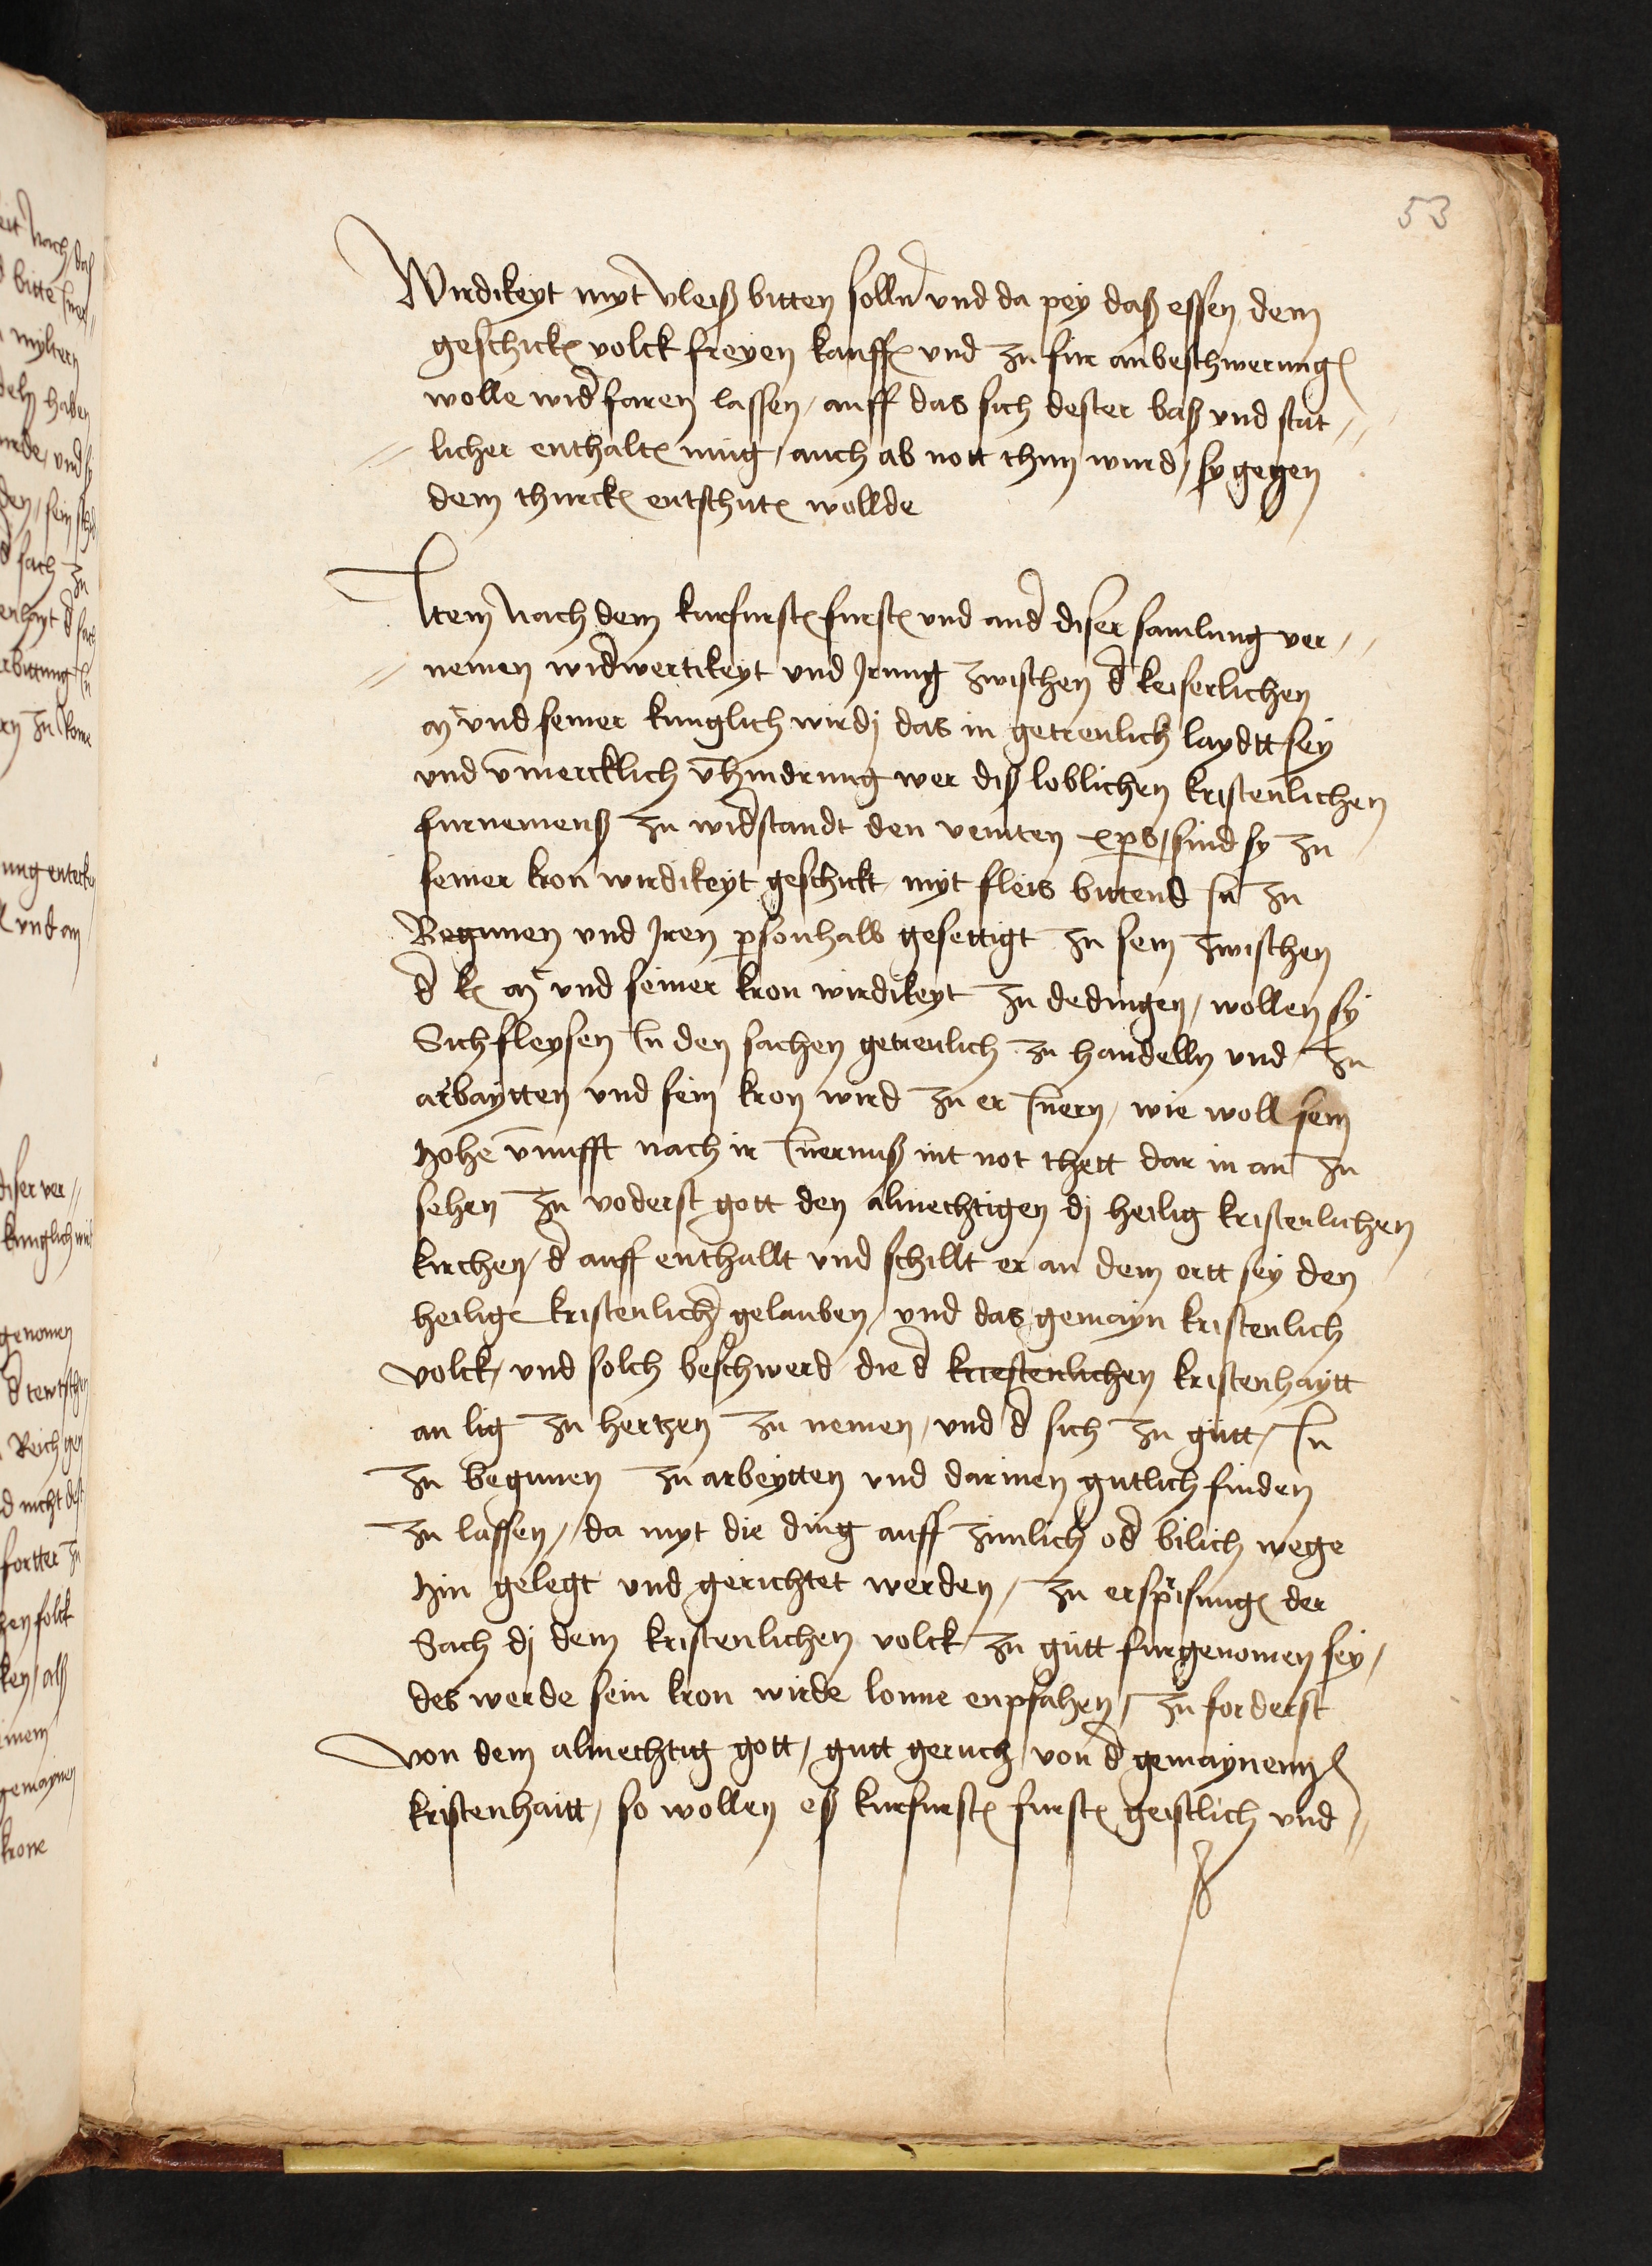 53
Wirdikeyt myt vleiß bitten solln und da pey daß essen dem
geschickten volck freyen kauff und zu fur an beschwerung
wolle widfaren lassen / auff das sich dester baß und stat //
// licher enthalten mug / auch ab nott thun wurd / sy gegen
dem thurcken entschuten wollde
Item Nach dem kurfursten fursten und and diser samlung ver //
// nemen widwertikeyt und Irung zwischen d keiserlichen
mt und seiner kunglich wirdj das in getreulich laydtt sey
und unmercklich vhindrung wer diß loblichen kristenlichen
furnemenß zu widstandt den veinten xps / sind sy zu
seiner kron wirdikeyt geschickt myt fleis bittend In zu
Begunen und Iren psonhalb gesettigt zu sein zwischen
d k mt und seiner kron wirdikeyt zu dedingen / wollen sy
Sich fleysen In den sachen getreulich zu handelln und zu
arbaytten und sein kron wird zu er Innern / wie woll sein
hohe vnufft nach ir Innernuß nit not thett dar in an zu
sehen zu voderst gott den almechtigen dj heilig kristenlichen
kirchen / d auff enthallt und schillt er an dem ortt sey den
heilige kristenlich gelauben / und das gemayn kristenlich
volck / und solch beschwerd die d kriestenlichen kristenhaytt
an lig zu hertzen zu nemen / und d sich zu gutt / In
zu begunen zu arbeytten und darinen gutlich finden
zu lassen / da myt die ding auff zimlich od bilich wege
hin gelegt und gerichtet werden / zu erspriesung der
Sach dj dem kristenlichen volck zu gutt furgenomen sey /
des werde sein kron wirde lonne enpfahen / zu forderst
von dem almechtig gott / gutt geruch von d gemaynenn
kristenhaitt / so wollen eß kurfursten fursten geistlich und //